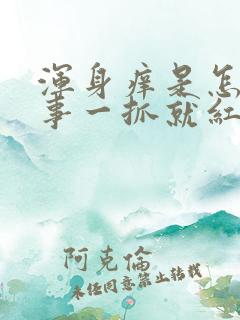 渾身痒是怎
事一抓就紅
阿克倫
未经同意禁止转载